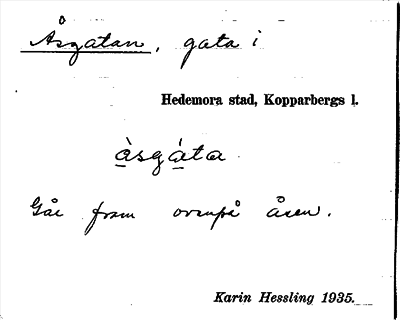 Åsgatan, gata i
Hedemora stad, Kopparbergs l.
àsgáta
Går fram ovanpå åsen.
Karin Hessling 1935.